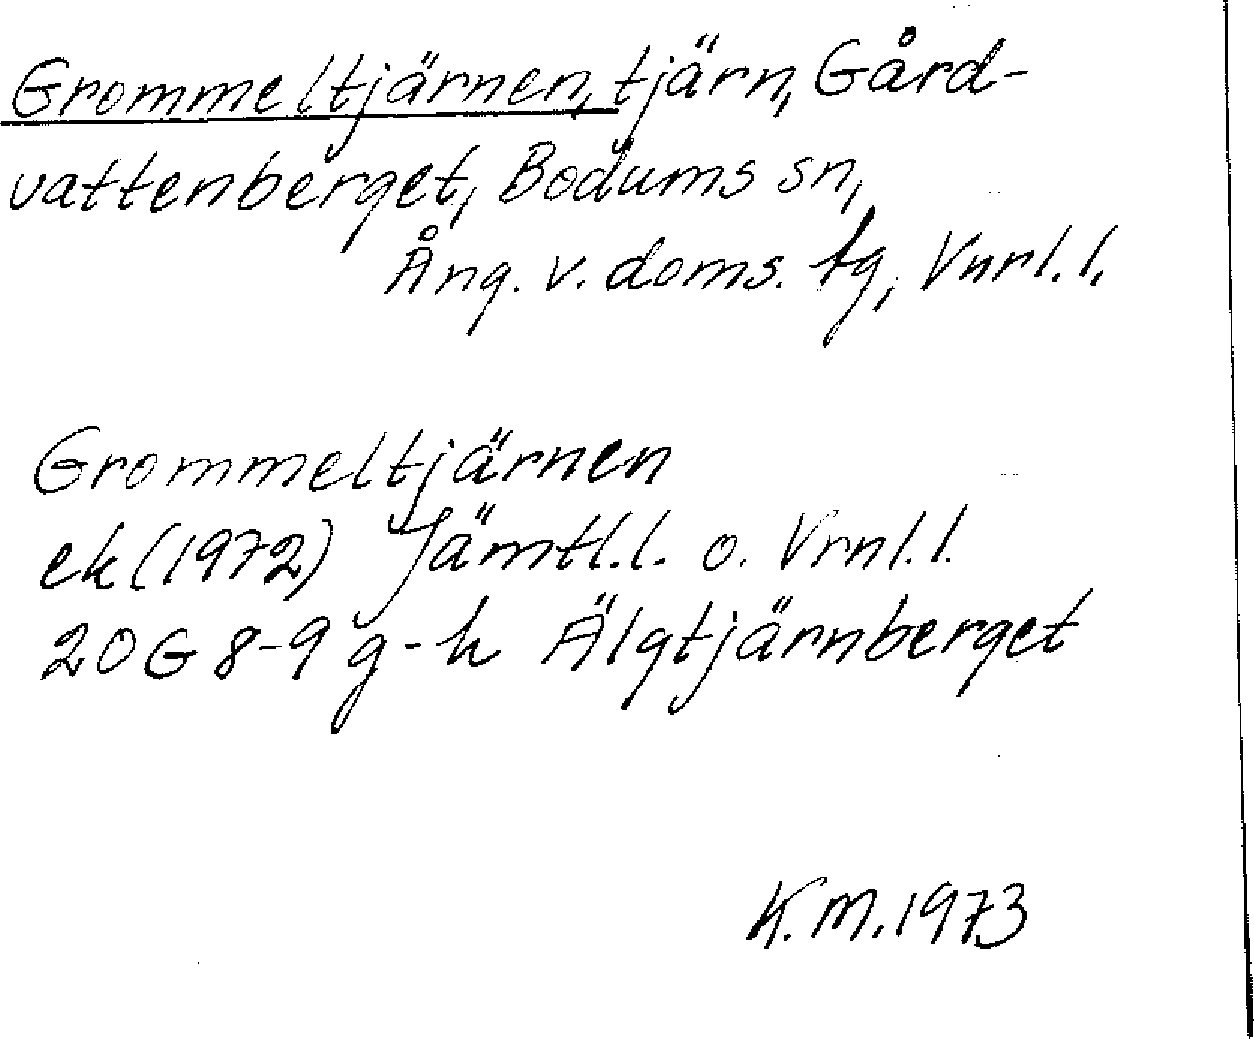 Grommeltjärnen, tjärn, Gård-
vattenberget, Bodums sn,
Ång. v. doms. tg, Vnrl. l.
Grommeltjärnen
ek (1972) Jämtl. l. o. Vrnl. l.
20G 8-9 g-h Älgtjärnberget
K.M. 1973